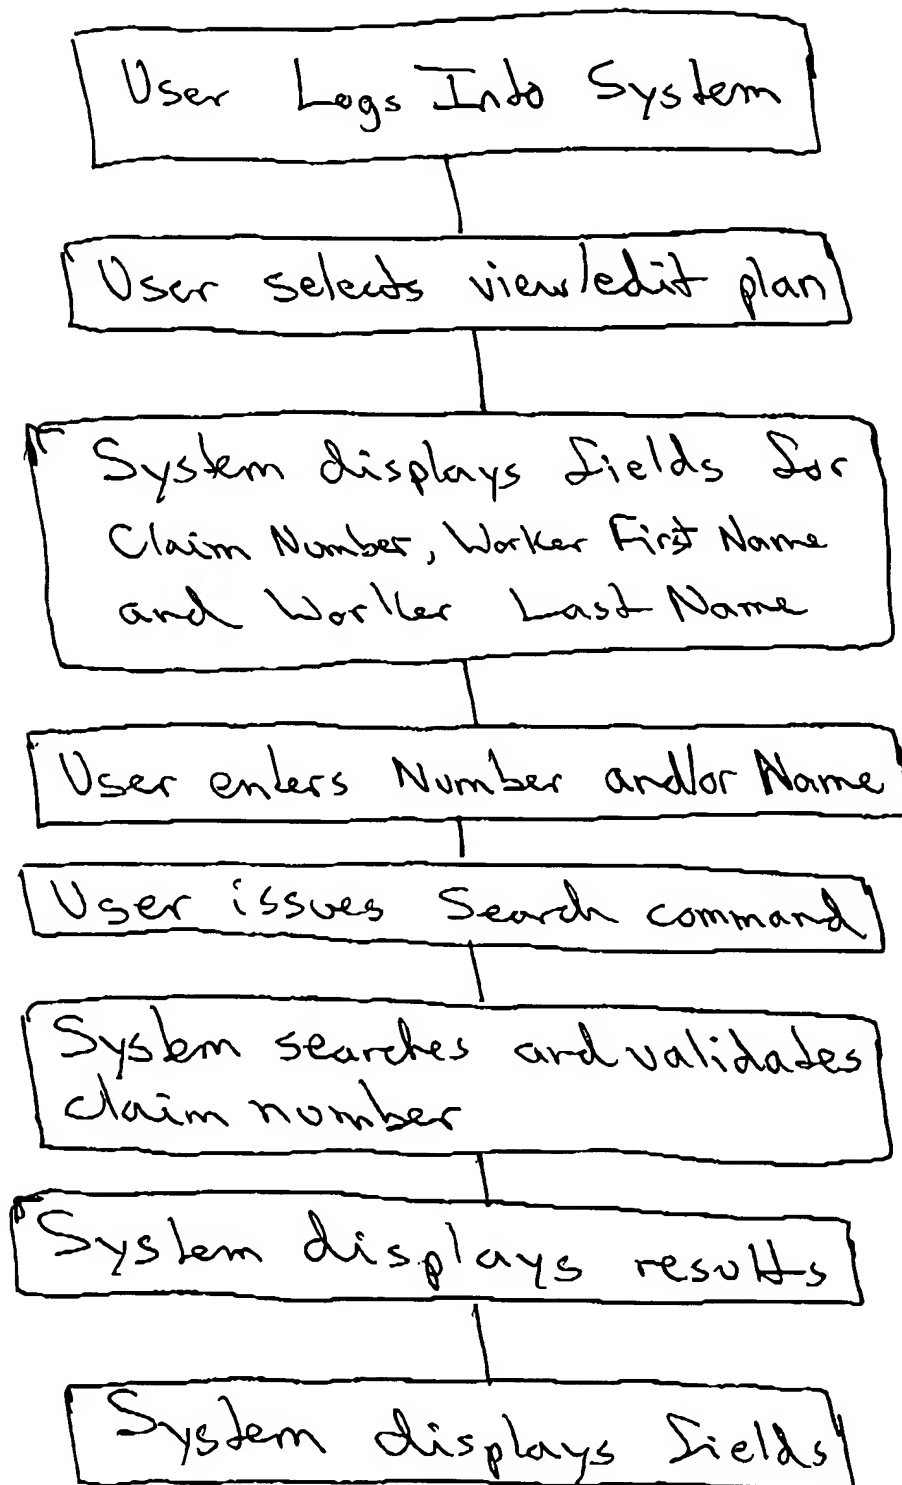 User Logs Into System
User selects view/edit plan
System displays fields for
Claim Number, Worker First Name
and Worker Last Name
User enters Number and/or Name
User issues Search command
System searches and validates
claim number
System displays results
System displays fields